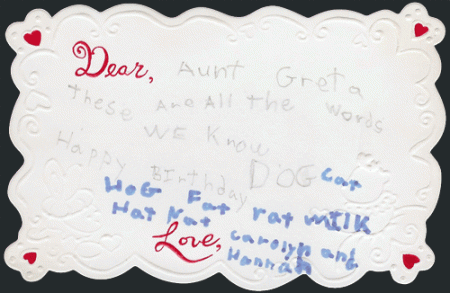 Dear, Aunt Greta
These Are All the words
WE Know
Happy Birthday DOG Cat
HoG Fat rat MILK
Hat Nat
Love, Carolyn and
Hannah